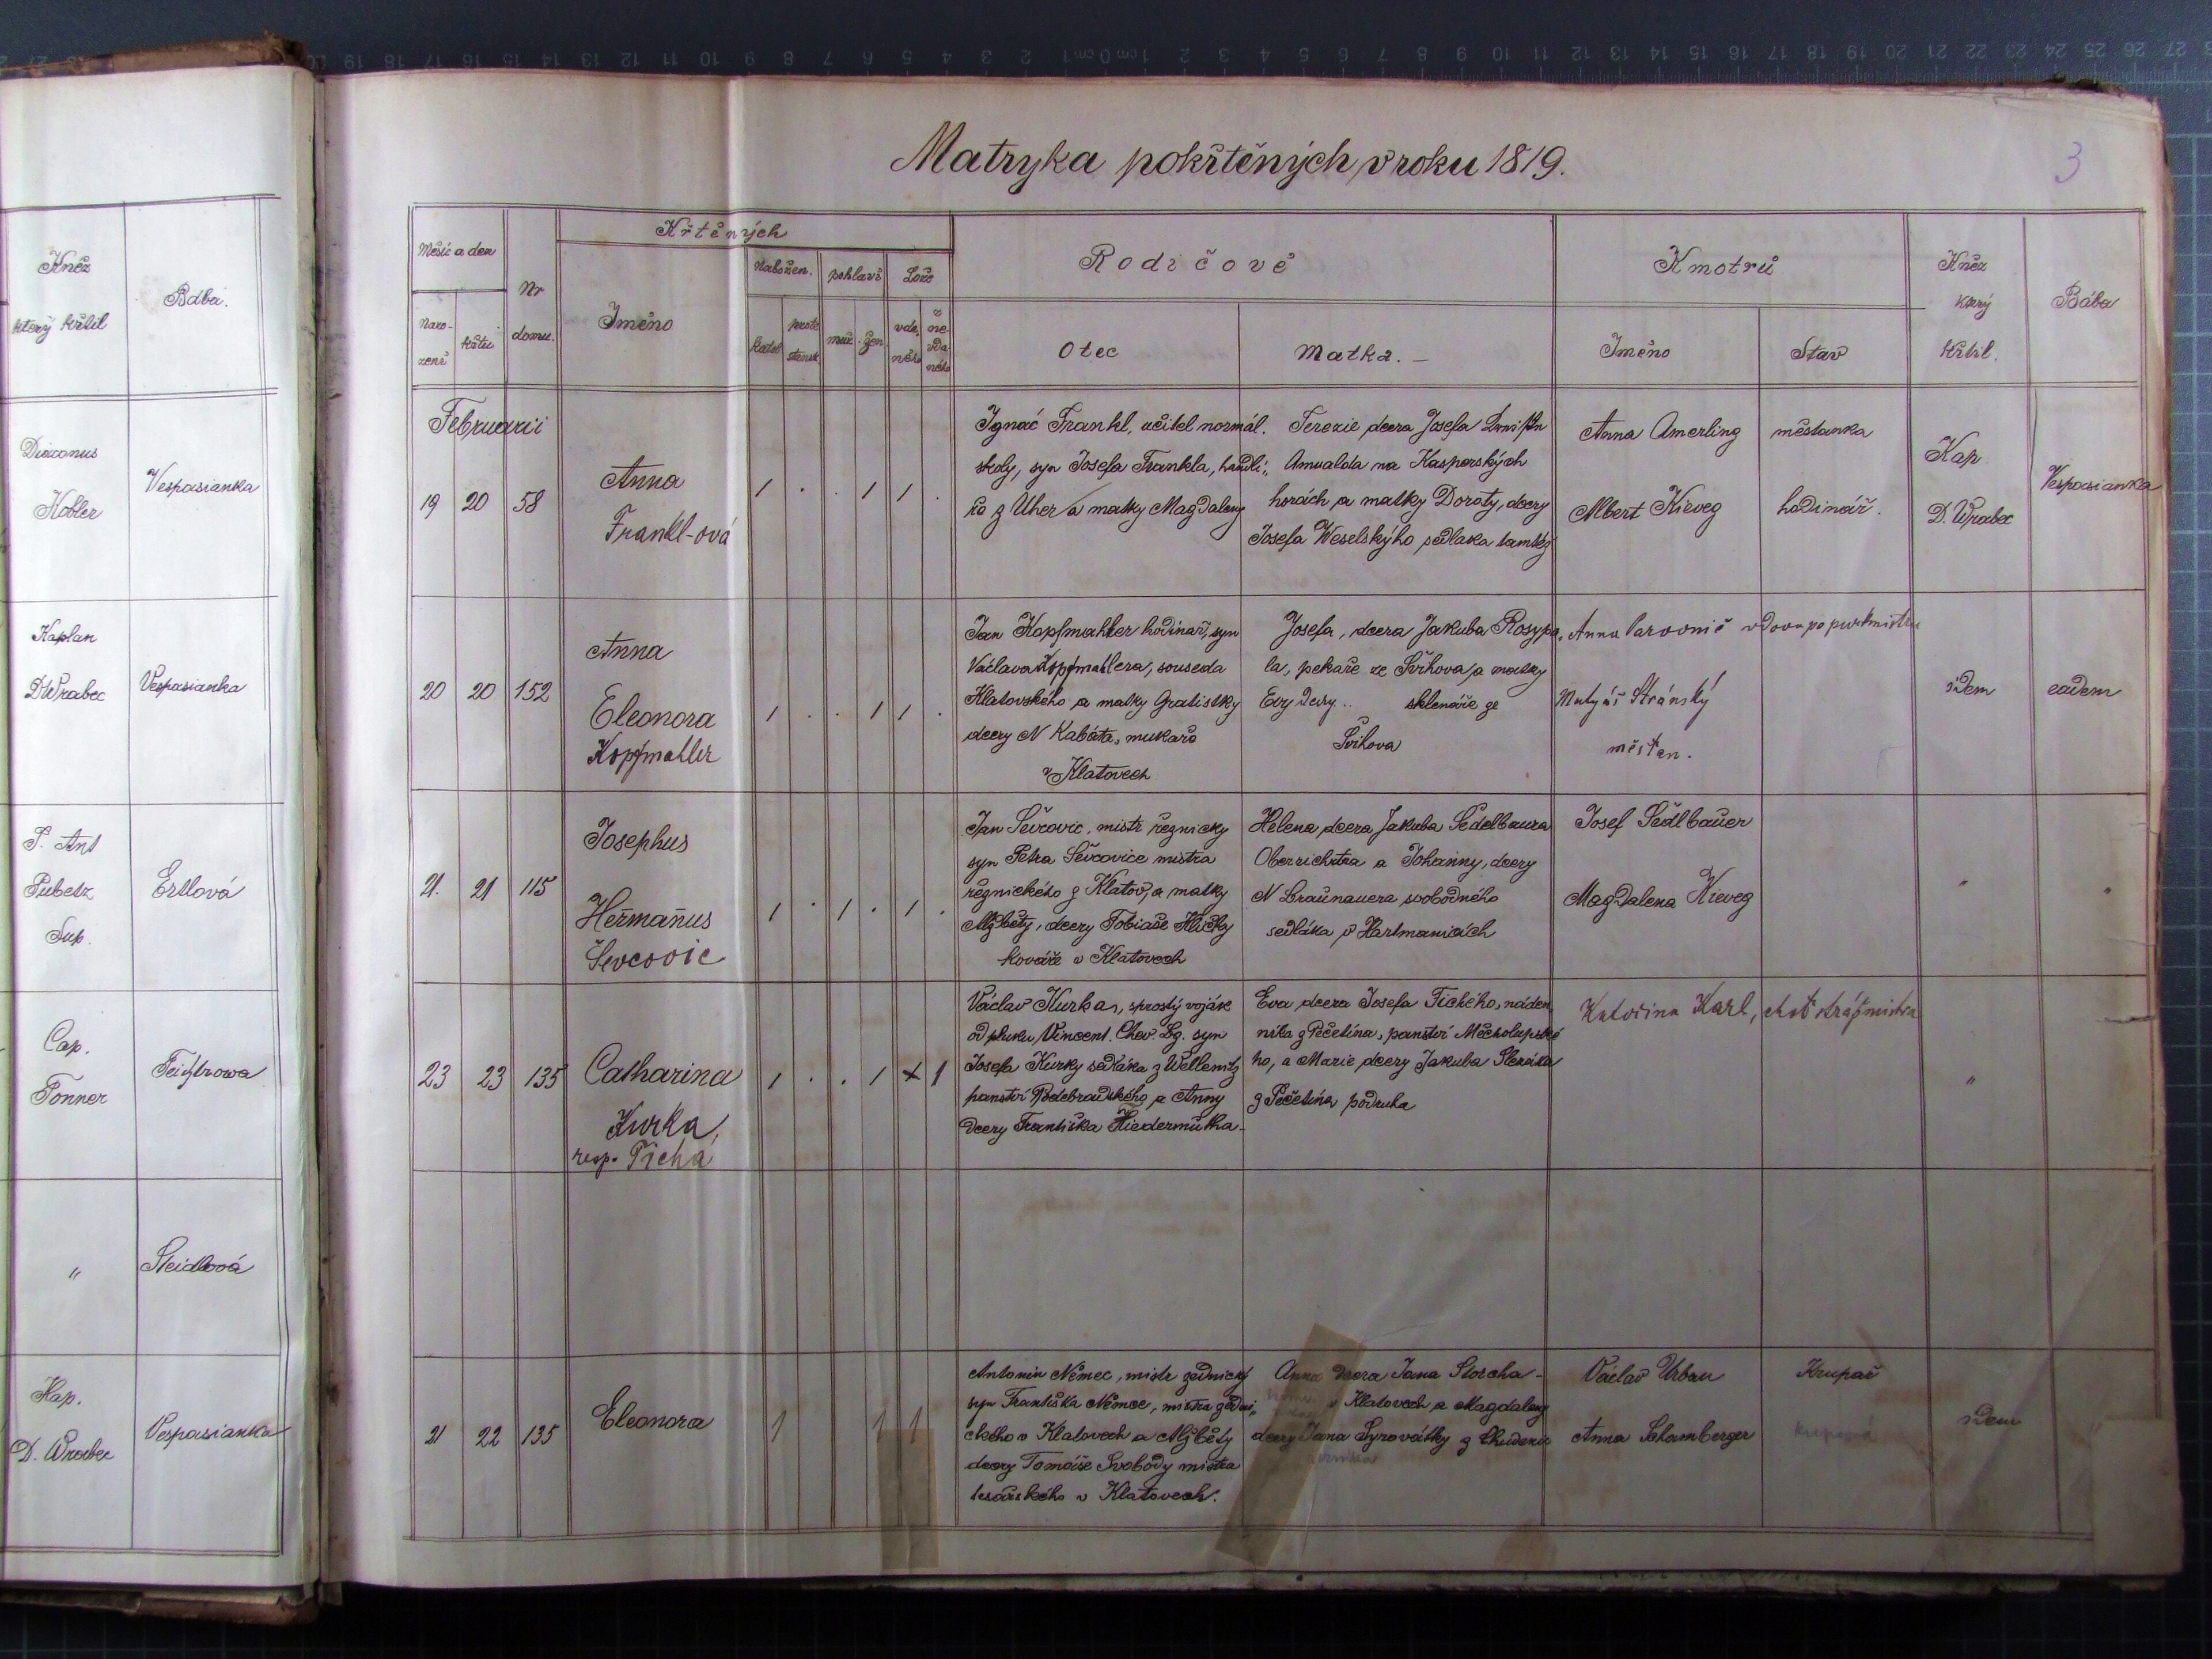 Kněz
který křtil
Bába.
Diaconus
Kobler
Vespasianka
Kaplan
D Wrabec
Vespasianka
P. Ant
Pubetz
Sup.
Ertlová
Cap.
Tonner
"
Steidlová
Kap.
D. Wrabec
Vespasianka
Matryka pokřtěných v roku 1819.
3
Měsíc a den
Naro-
zení
křtu
Nr
domu.
Křtěných
Jméno
Nabožen.
katol
prote
stansk.
pohlaví
muž.
žen
Lože
ne-
Rodičové
Otec
Matka. –
Kmotrů
Jméno
Stav
Kněz
který
křtil.
Bába
Februarii
19 20 58
Anna
Frankl-ová
1 . . 1 1 .
Ignác Frankl, učitel normál.
školy, syn Josefa Frankla,
z Uher a matky Magdaleny
Terezie dcera Josefa
Amvalda na Kasperských
horách a matky Doroty, dcery
Josefa Weselskýho sedlaka
Anna Amerling
měštanka
Albert Kieveg
hodinář.
Kap
D. Wrabec
Vespasianka
20 20 152
Anna
Eleonora
Kopfmahler
1 . . 1 1 .
Jan Kopfmahler hodinář, syn
Václava Kopfmahlera, souseda
Klatovského a matky
dcery N Kabáta,
v Klatovech
Josefa, dcera Jakuba Rosypa-
la, pekaře ze Švihova a matky
Evy dcery .. sklenáře ze
Švihova
Anna
vdova po purkmistru
Matyáš Stránský
měšťan.
idem
eadem
21. 21 115
Josephus
Heřmanus
Ševcovic
1 . 1 . 1 .
Jan Ševcovic, mistr řeznický
syn Petra Ševcovice mistra
řeznického z Klatov, a matky
Alžběty, dcery Tobiáše
kováře v Klatovech
Helena dcera Jakuba Sedelbaura
Oberrichtra a Johanny, dcery
N Braunauera svobodného
sedláka v Hartmanicích
Josef Sedlbauer
Magdalena Kieveg
"
"
23 23 135
Catharina
Kurka,
resp. Tichá
1 . . 1 x 1
Václav Kurka, sprostý voják
od pluku Vincent. Chev. Lg. syn
Josefa Kurky sedláka z
panství Poděbradského a Anny
dcery Františka
Eva dcera Josefa Tichého, náden
níka z Pečetína, panství
ho, a Marie dcery Jakuba
z Pečetína podruha
Kateřina Karl, choť strážmistra
"
21 22 135
Eleonora
1 1 1
Antonín Němec, mistr zednický
syn Františka Němce, mistra zedni,
ckého v Klatovech a Alžběty
dcery Tomáše Svobody mistra
tesařského v Klatovech.
Anna dcera Jana Storcha
v Klatovech a Magdaleny
dcery Jana Syrovátky z Chudenic
Václav Urban
Krupař
Anna Schamberger
krupařá
idem